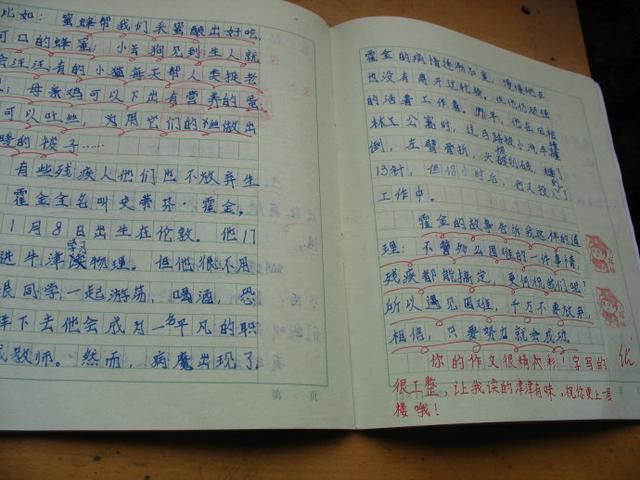 比如：蜜蜂帮我们采蜜酿出好吃
可口的蜂蜜；小首狗见到生人就
会汪汪；有的小猫每天帮人类捉老
；母亲鸡可以下出有营养的蛋
可以吐丝，为用它们的丝做出
暖的被子……
有些残疾人他们也不放弃生
霍金全名叫史蒂芬·霍金，
1月8日出生在伦敦。他17
进牛津学习读物理。但他很不用
跟同学一起游荡，喝酒，恐
样下去他会成为一名平凡的职
或教师。然而，病魔出现了
第 页
霍金的病情逐渐加重，慢慢他
也没有离开过轮椅，但他仍顽强
的活着工作着。
林工公寓时，过马路被小汽车撞
倒，左臂骨折，头被划破，缝了
13针，但48小时后，他又投入了
工作中。
霍金的故事告诉我这样的道
理：不管如么困难的一件事情，
残疾都能搞定，更何况我们呢？
所以遇见困难，千万不要放弃，
相信，只要努力就会成功。
你的作文很精彩！字写的
很工整，让我读的津津有味，祝你更上一层
楼哦！
优